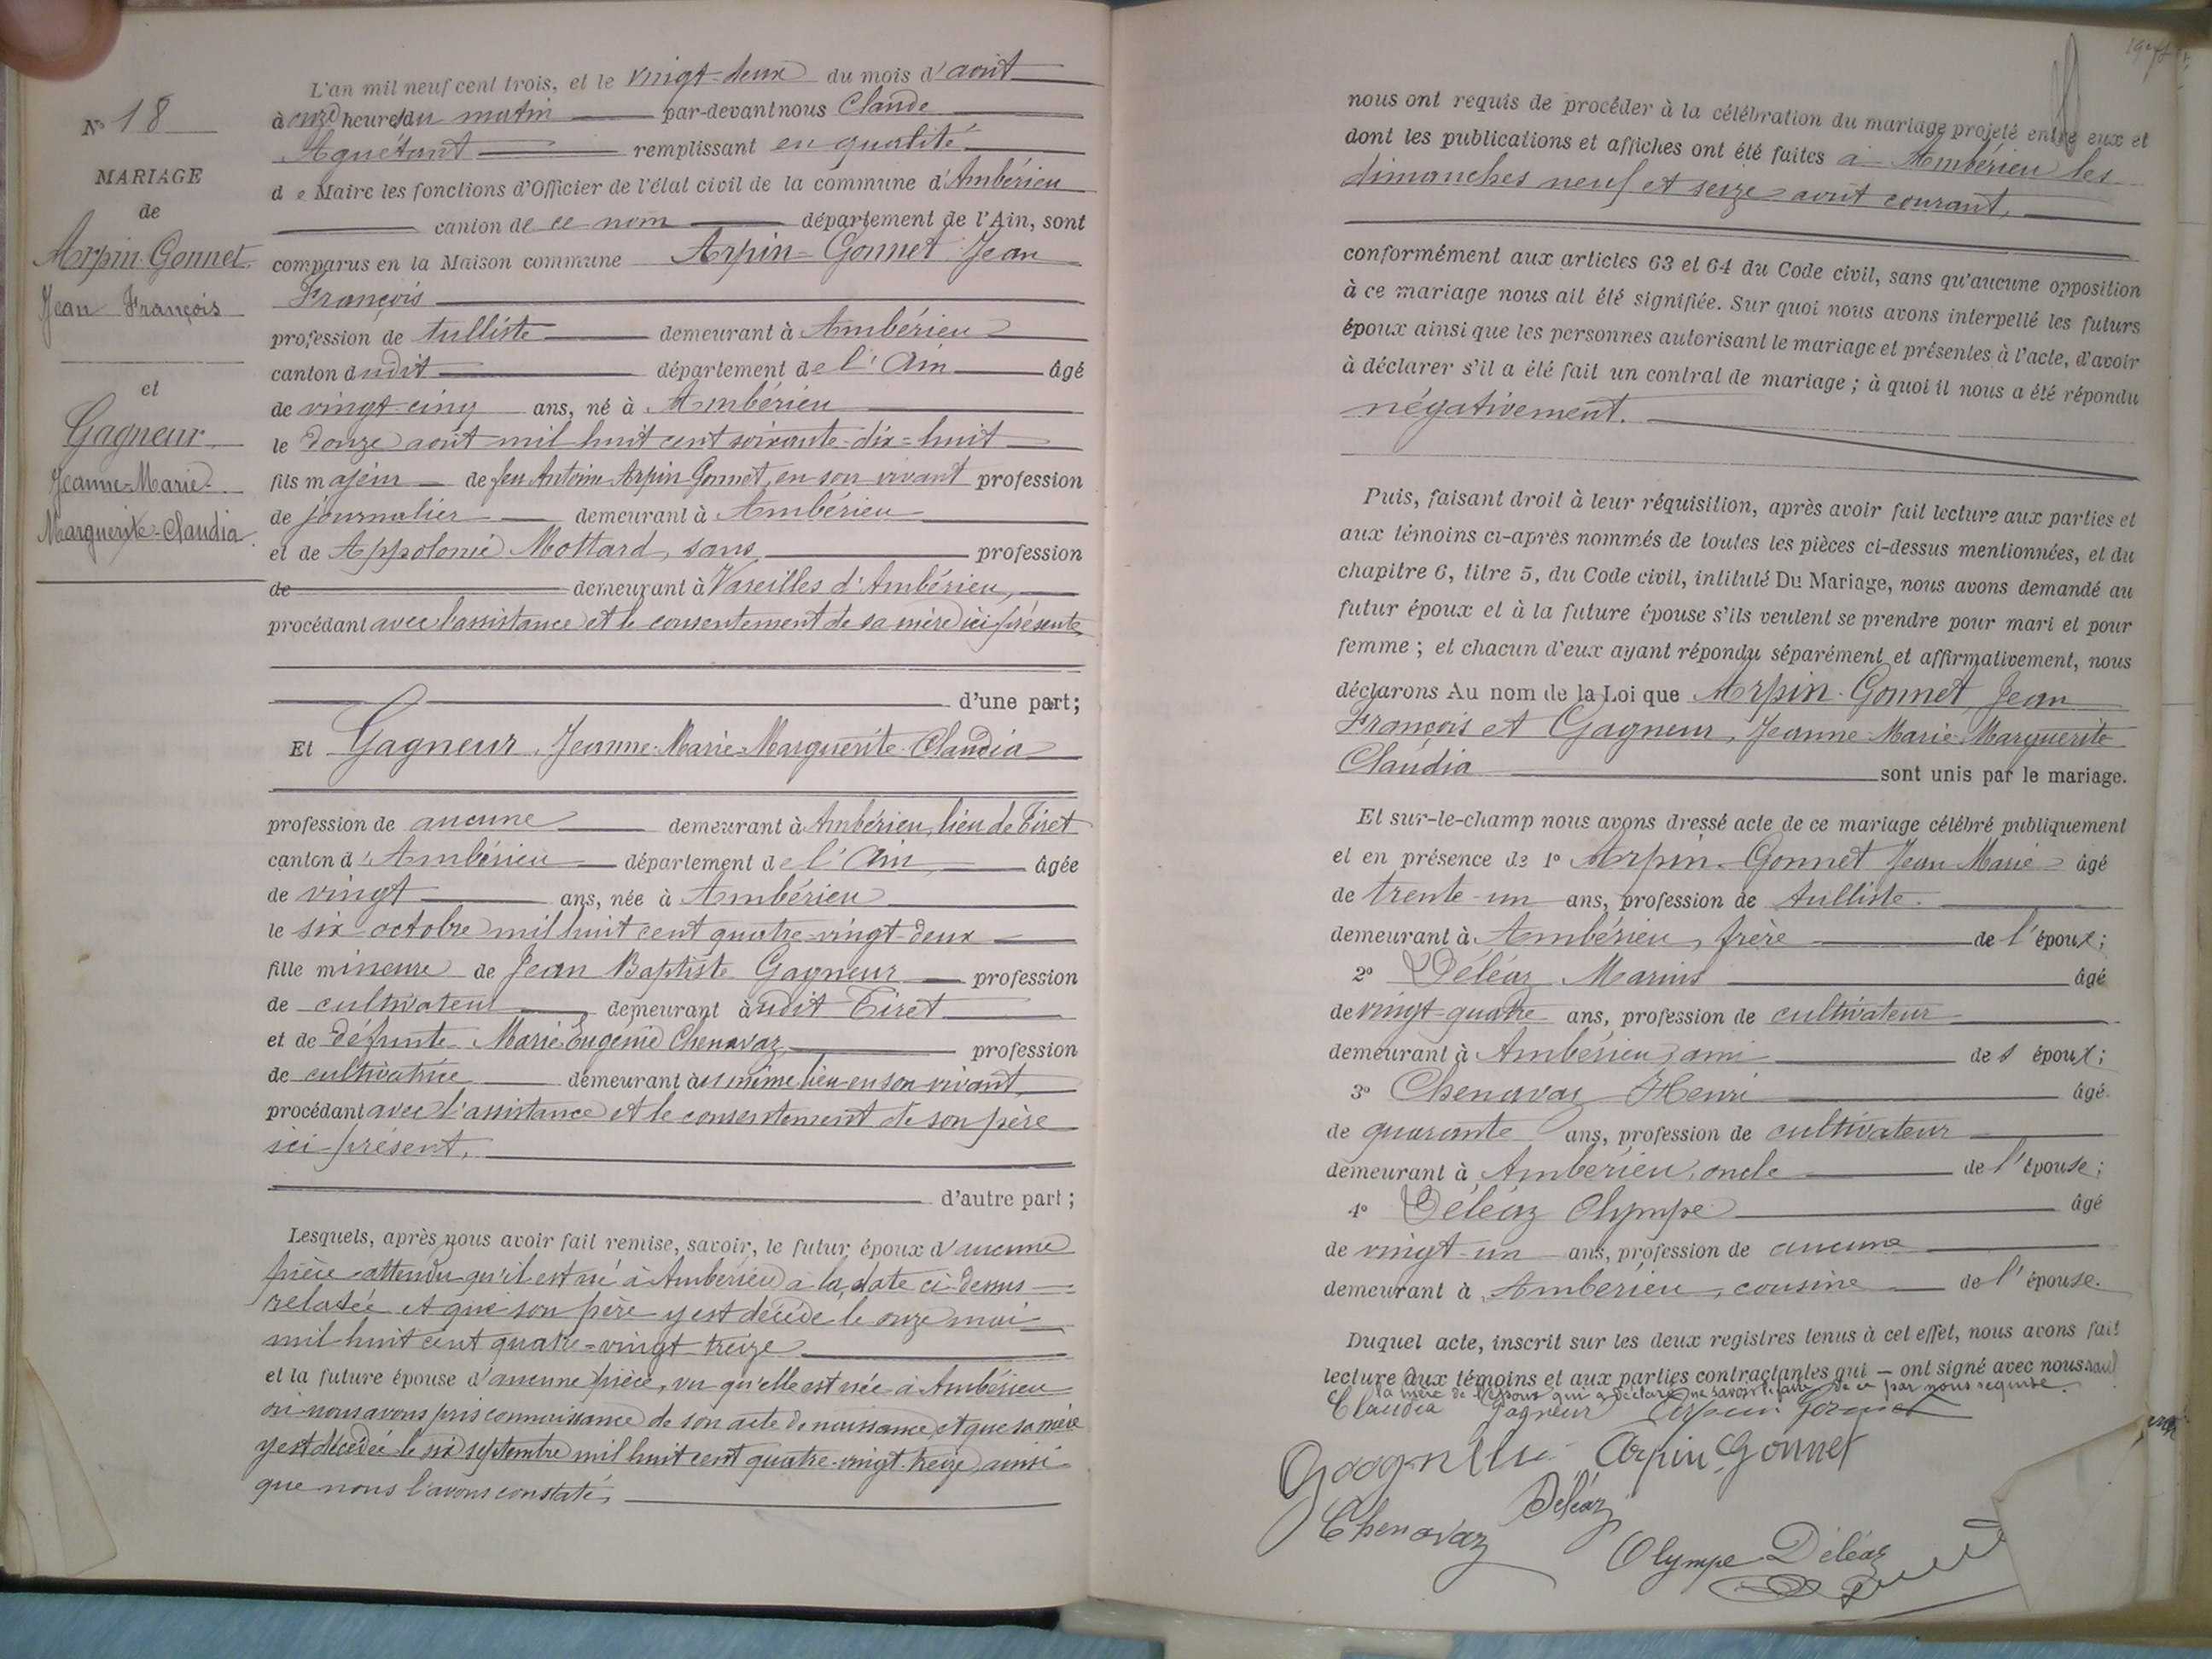 N° 18
MARIAGE
de
Arpin-Gonnet
Jean François
et
Gagneur
Jeanne-Marie
Marguerite-Claudia
L'an mil neuf cent trois, et le vingt-deux du mois d'août
à onze heures du matin par-devant nous Claude
Aguétant remplissant en qualité
de Maire les fonctions d'Officier de l'état civil de la commune d'Ambérieu
canton de ce nom département de l'Ain, sont
comparus en la Maison commune Arpin-Gonnet Jean
François
profession de tulliste demeurant à Ambérieu
canton dudit département de l'Ain âgé
de vingt-cinq ans, né à Ambérieu
le douze août mil huit cent soixante-dix-huit
fils majeur de feu Antoine Arpin Gonnet, en son vivant profession
de journalier demeurant à Ambérieu
et de Appolonie Mottard, sans profession
de demeurant à Vareilles d'Ambérieu,
procédant avec l'assistance et le consentement de sa mère ici présente
d'une part;
Et Gagneur, Jeanne-Marie-Marguerite-Claudia
profession de aucune demeurant à Ambérieu, lieu de Tiret
canton d'Ambérieu département de l'Ain, âgée
de vingt ans, née à Ambérieu
le six octobre mil huit cent quatre-vingt-deux
fille mineure de Jean Baptiste Gagneur profession
de cultivateur demeurant audit Tiret
et de défunte Marie Eugénie Chenavaz profession
de cultivatrice demeurant au même lieu en son vivant,
procédant avec l'assistance et le consentement de son père
ici présent,
d'autre part;
Lesquels, après nous avoir fait remise, savoir, le futur époux d'aucune
pièce attendu qu'il est né à Ambérieu à la date ci-dessus
relatée et que son père y est décédé le onze mai
mil huit cent quatre-vingt treize
et la future épouse d'aucune pièce, vu qu'elle est née à Ambérieu
où nous avons pris connaissance de son acte de naissance, et que sa mère
y est décédée le six septembre mil huit cent quatre-vingt-treize, ainsi
que nous l'avons constaté,
nous ont requis de procéder à la célébration du mariage projeté entre eux et
dont les publications et affiches ont été faites à Ambérieu les
dimanches neuf et seize août courant,
conformément aux articles 63 et 64 du Code civil, sans qu'aucune opposition
à ce mariage nous ait été signifiée. Sur quoi nous avons interpellé les futurs
époux ainsi que les personnes autorisant le mariage et présentes à l'acte, d'avoir
à déclarer s'il a été fait un contrat de mariage; à quoi il nous a été répondu
négativement.
Puis, faisant droit à leur réquisition, après avoir fait lecture aux parties et
aux témoins ci-après nommés de toutes les pièces ci-dessus mentionnées, et du
chapitre 6, titre 5, du Code civil, intitulé Du Mariage, nous avons demandé au
futur époux et à la future épouse s'ils veulent se prendre pour mari et pour
femme; et chacun d'eux ayant répondu séparément et affirmativement, nous
déclarons Au nom de la Loi que Arpin-Gonnet, Jean
François et Gagneur, Jeanne-Marie-Marguerite
Claudia sont unis par le mariage.
Et sur-le-champ nous avons dressé acte de ce mariage célébré publiquement
et en présence de 1° Arpin-Gonnet Jean Marie âgé
de trente-un ans, profession de tulliste.
demeurant à Ambérieu, frère de l'époux;
2° Déléaz Marius âgé
de vingt-quatre ans, profession de cultivateur
demeurant à Ambérieu, ami des époux;
3° Chenavaz Henri âgé
de quarante ans, profession de cultivateur
demeurant à Ambérieu, oncle de l'épouse;
4° Déléaz Olympe âgé
de vingt-un ans, profession de aucune
demeurant à Ambérieu, cousine de l'épouse.
Duquel acte, inscrit sur les deux registres tenus à cet effet, nous avons fait
lecture aux témoins et aux parties contractantes qui – ont signé avec nous sauf
la mère de l'époux qui a déclaré ne savoir le faire de ce par nous requise.
Claudia Gagneur Arpin Gonnet
Gagneur Arpin Gonnet
Déléaz
Chenavaz
Olympe Déléaz